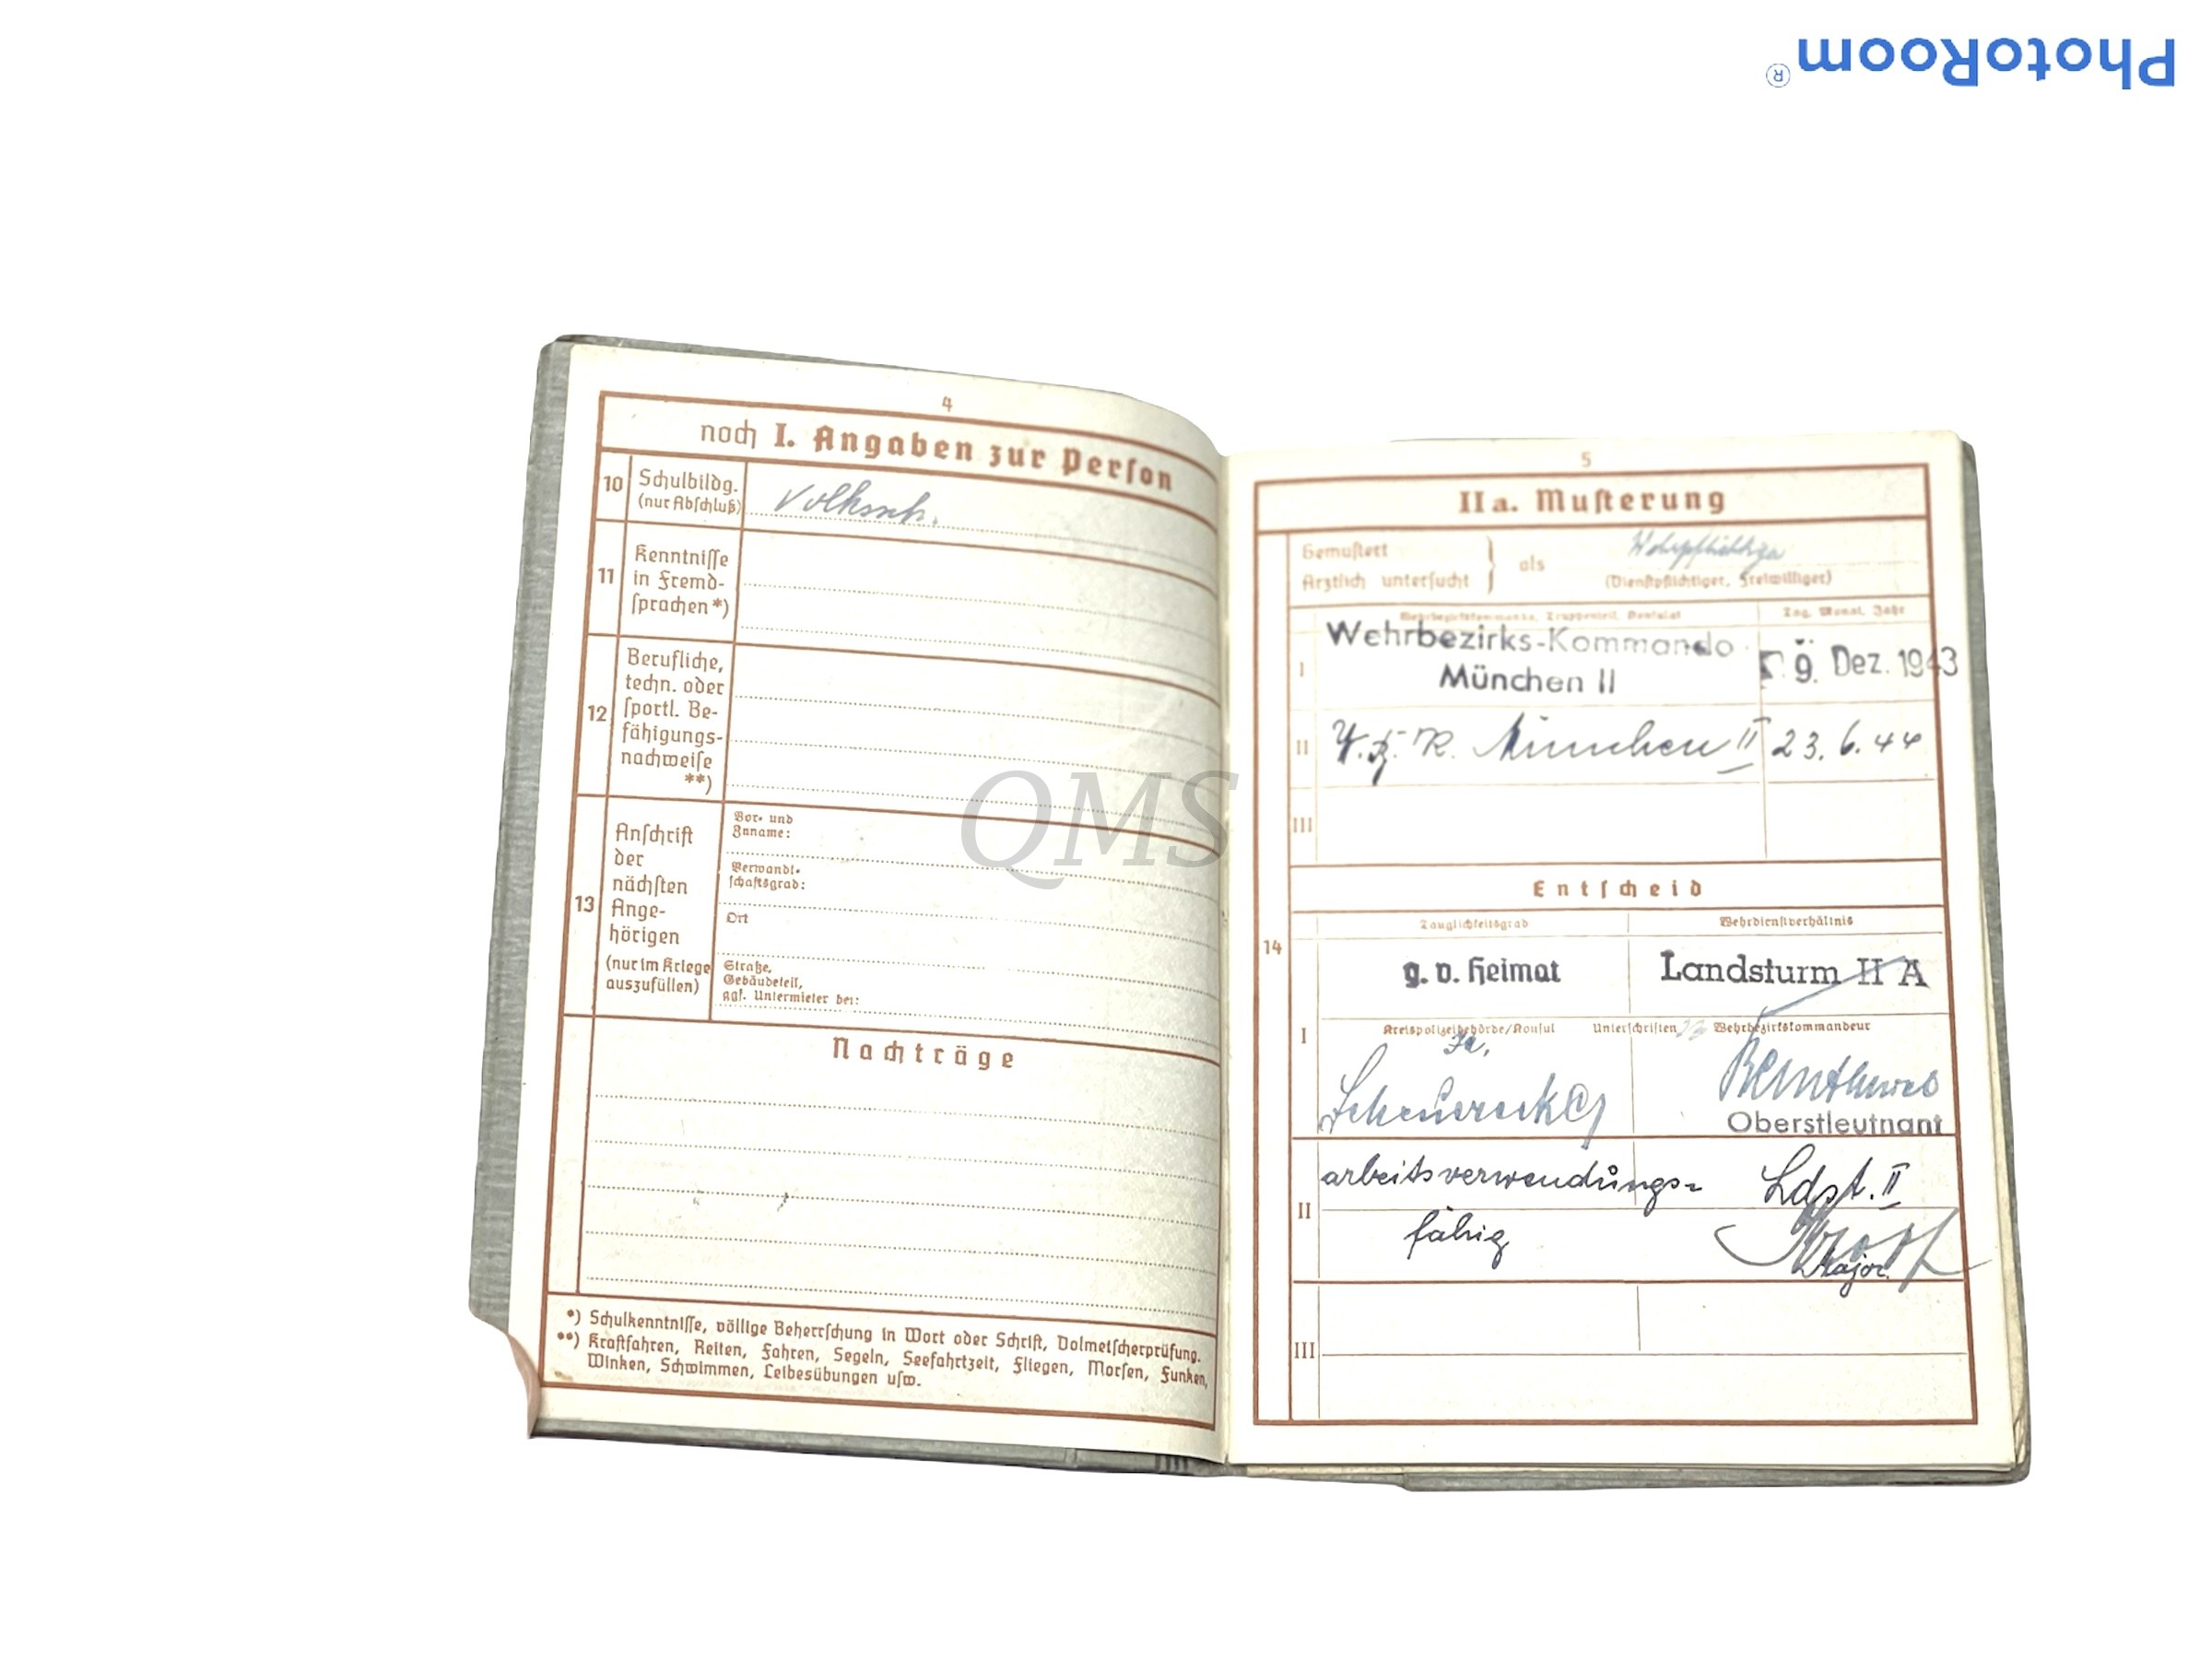 PhotoRoom®
4
noch I. Angaben zur Person
10 Schulbildg.
(nur Abschluß)
Volkssch.
11 Kenntnisse
in Fremd-
sprachen *)
12 Berufliche,
techn. oder
sportl. Be-
fähigungs-
nachweise
**)
13 Anschrift
der
nächsten
Ange-
hörigen
(nur im Kriege
auszufüllen)
Vor- und
Zuname:
Verwandt-
schaftsgrad:
Ort
Straße,
Gebäudeteil,
ggf. Untermieter bei:
Nachträge
*) Schulkenntnisse, völlige Beherrschung in Wort oder Schrift, Dolmetscherprüfung.
**) Kraftfahren, Reiten, Fahren, Segeln, Seefahrtzeit, Fliegen, Morsen, Funken,
Winken, Schwimmen, Leibesübungen usw.
QMS
5
II a. Musterung
Gemustert
Ärztlich untersucht } als
(Dienstpflichtiger, Freiwilliger)
Wehrbezirkskommando, Truppenteil, Konsulat Tag, Monat, Jahr
I Wehrbezirks-Kommando
München II
9. Dez. 1943
II W.B.K. München II 23.6.44
III
Entscheid
14
Tauglichkeitsgrad Wehrdienstverhältnis
g. v. Heimat Landsturm II A
I Kreispolizeibehörde/Konsul Unterschriften Wehrbezirkskommandeur
Oberstleutnant
II arbeitsverwendungs- Ldst. II
fähig
Major
III